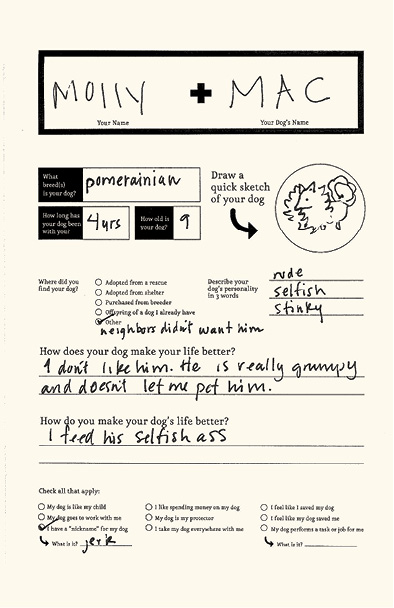 MOllY + MAC
Your Name Your Dog's Name
What breed(s) is your dog? pomerainian
How long has your dog been with you? 4yrs How old is your dog? 9
Draw a quick sketch of your dog
Where did you find your dog?
Adopted from a rescue
Adopted from shelter
Purchased from breeder
Offspring of a dog I already have
Other
neighbors didn't want him
Describe your dog's personality in 3 words
rude
selfish
stinky
How does your dog make your life better?
I don't like him. He is really grumpy
and doesn't let me pet him.
How do you make your dog's life better?
I feed his selfish ass
Check all that apply:
My dog is like my child
My dog goes to work with me
I have a "nickname" for my dog
What is it? jerk
I like spending money on my dog
My dog is my protector
I take my dog everywhere with me
I feel like I saved my dog
I feel like my dog saved me
My dog performs a task or job for me
What is it?